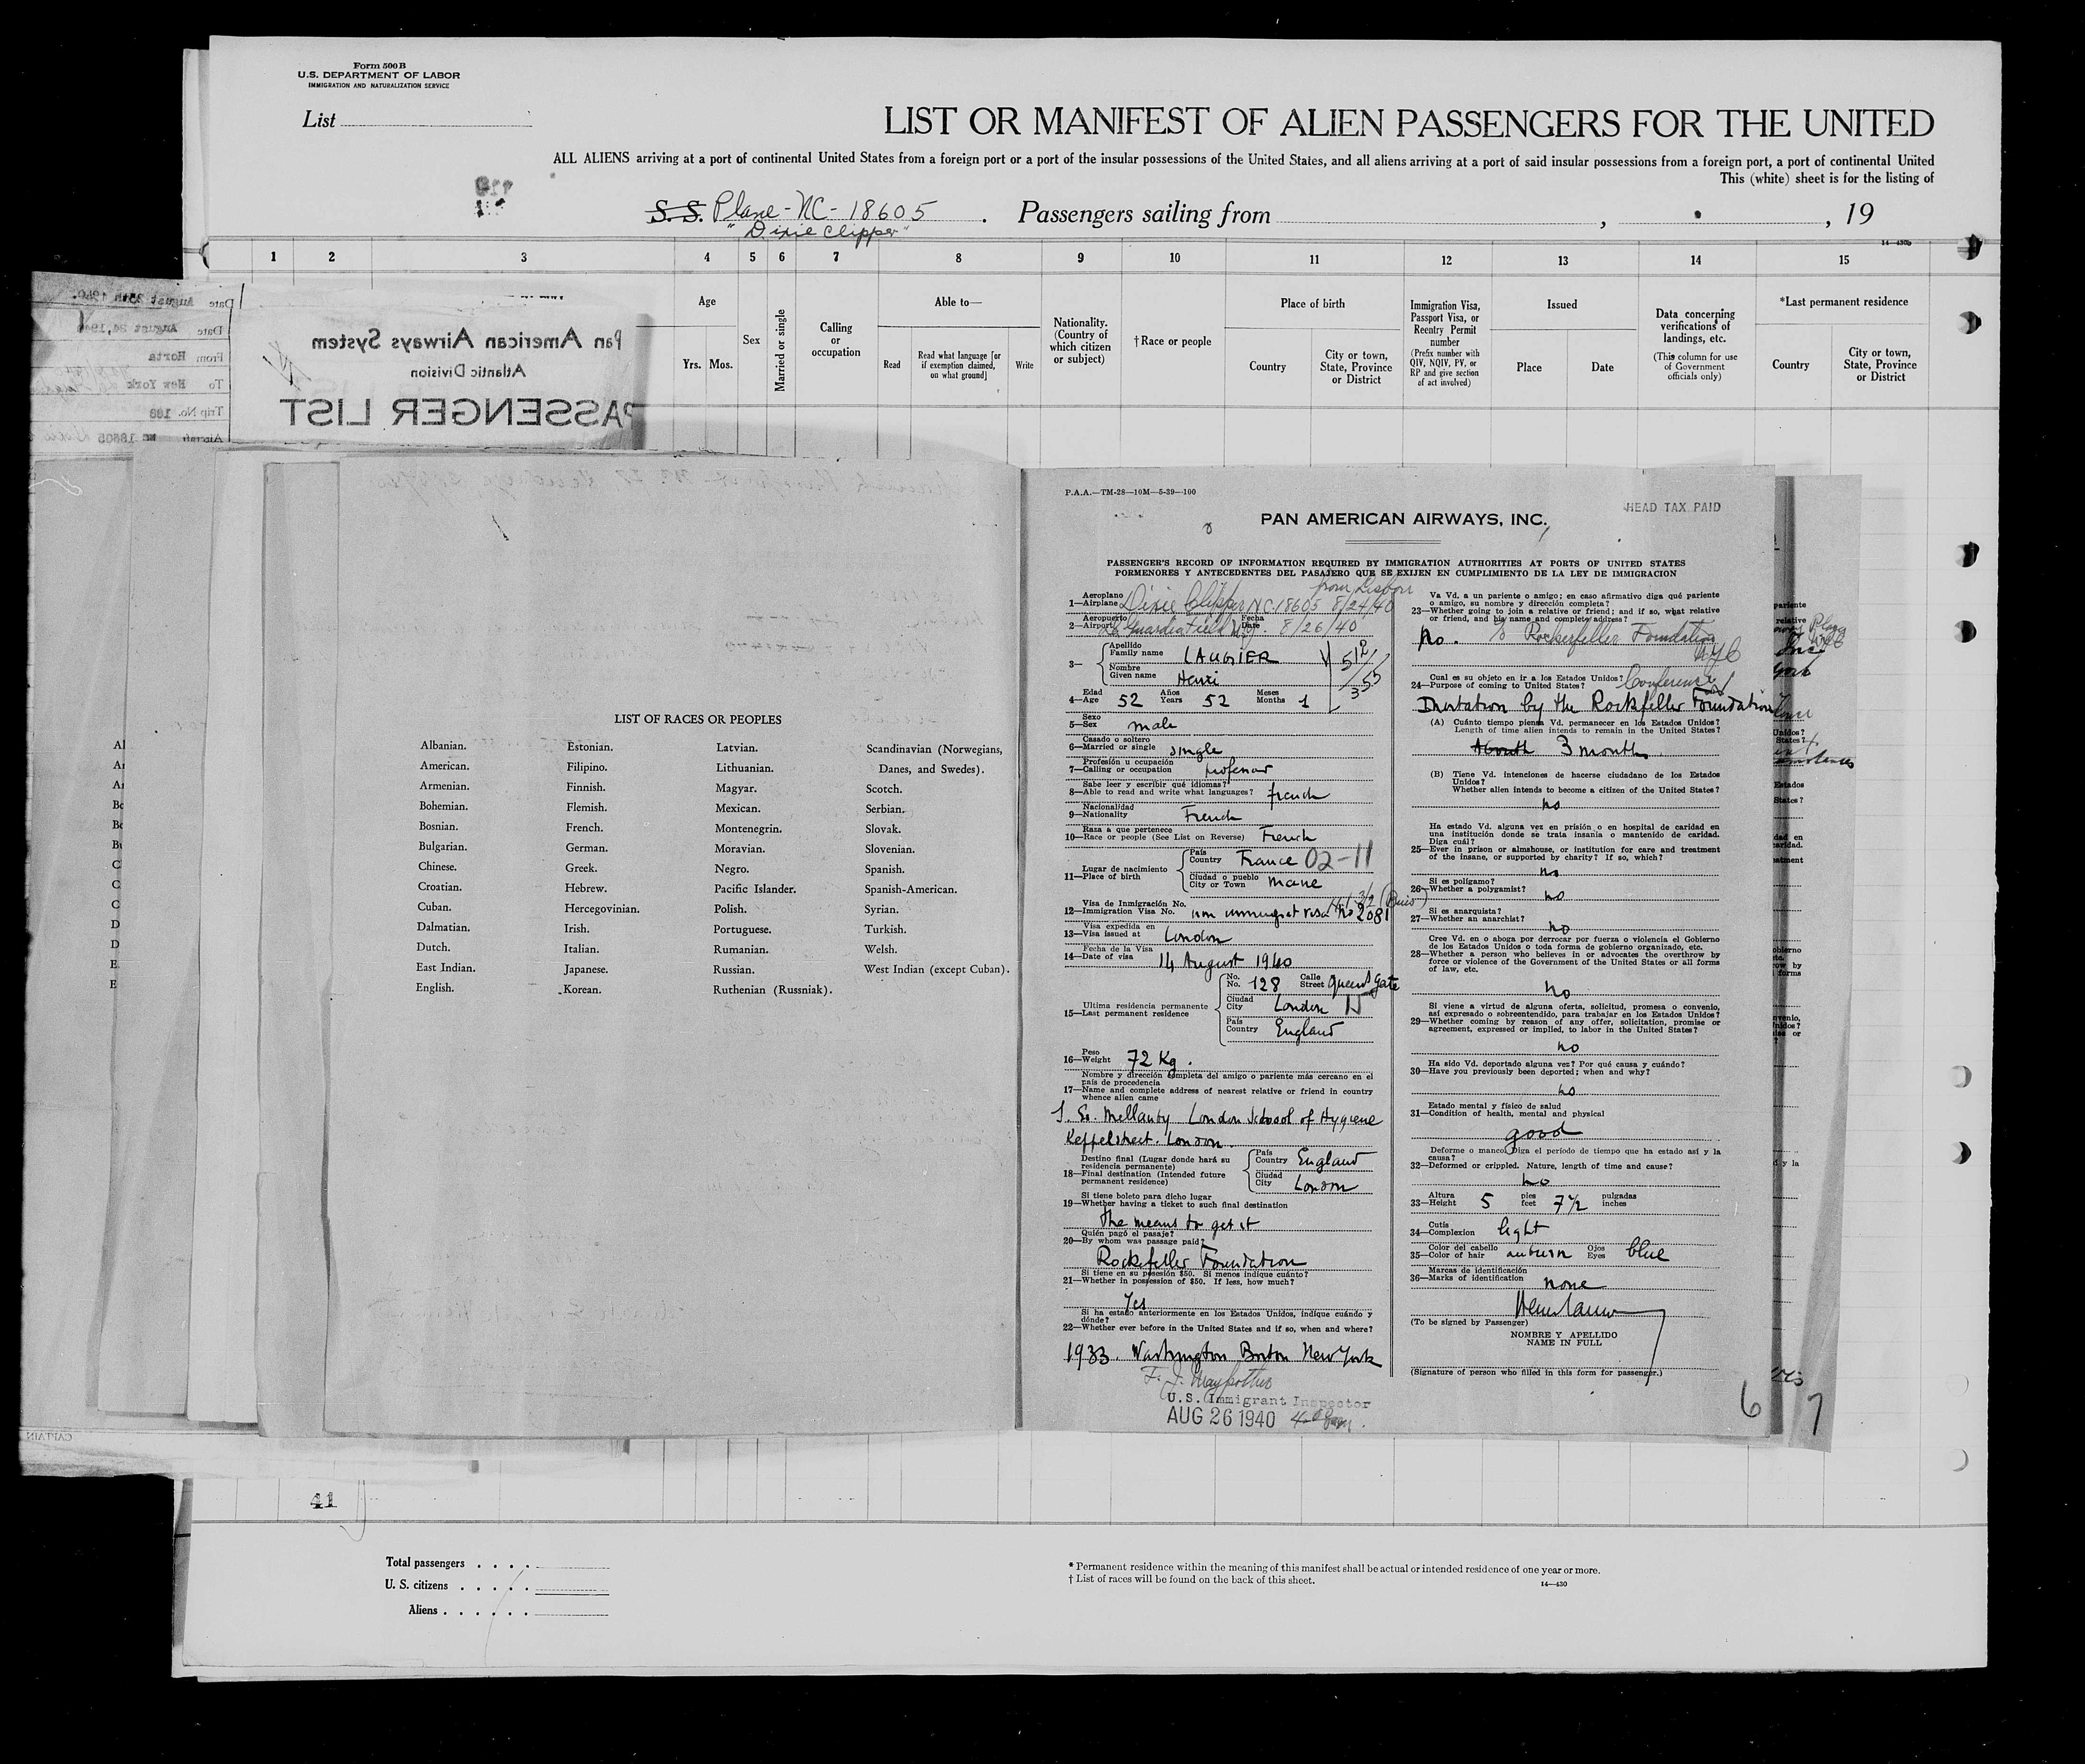 Form 500 B
U.S. DEPARTMENT OF LABOR
IMMIGRATION AND NATURALIZATION SERVICE
List
LIST OR MANIFEST OF ALIEN PASSENGERS FOR THE UNITED
ALL ALIENS arriving at a port of continental United States from a foreign port or a port of the insular possessions of the United States, and all aliens arriving at a port of said insular possessions from a foreign port, a port of continental United
This (white) sheet is for the listing of
S. S. Plane - NC - 18605 . Passengers sailing from , , 19
"Dixie Clipper"
14-430b
1 2 3 4 5 6 7 8 9 10 11 12 13 14 15
Age
Yrs. Mos.
Sex
Married or single
Calling
or
occupation
Able to—
Read
Read what language [or
if exemption claimed,
on what ground]
Write
Nationality.
(Country of
which citizen
or subject)
†Race or people
Place of birth
Country
City or town,
State, Province
or District
Immigration Visa,
Passport Visa, or
Reentry Permit
number
(Prefix number with
QIV, NQIV, PV, or
RP and give section
of act involved)
Issued
Place
Date
Data concerning
verifications of
landings, etc.
(This column for use
of Government
officials only)
*Last permanent residence
Country
City or town,
State, Province
or District
Date August 25th 1940.
Date August 24, 1940
From Horta
To New York
Trip No. 188
Aircraft NC 18605
Pan American Airways System
Atlantic Division
PASSENGER LIST
LIST OF RACES OR PEOPLES
Albanian.
American.
Armenian.
Bohemian.
Bosnian.
Bulgarian.
Chinese.
Croatian.
Cuban.
Dalmatian.
Dutch.
East Indian.
English.
Estonian.
Filipino.
Finnish.
Flemish.
French.
German.
Greek.
Hebrew.
Hercegovinian.
Irish.
Italian.
Japanese.
Korean.
Latvian.
Lithuanian.
Magyar.
Mexican.
Montenegrin.
Moravian.
Negro.
Pacific Islander.
Polish.
Portuguese.
Rumanian.
Russian.
Ruthenian (Russniak).
Scandinavian (Norwegians,
Danes, and Swedes).
Scotch.
Serbian.
Slovak.
Slovenian.
Spanish.
Spanish-American.
Syrian.
Turkish.
Welsh.
West Indian (except Cuban).
P.A.A.—TM-28—10M—5-39—100
HEAD TAX PAID
PAN AMERICAN AIRWAYS, INC.
PASSENGER'S RECORD OF INFORMATION REQUIRED BY IMMIGRATION AUTHORITIES AT PORTS OF UNITED STATES
PORMENORES Y ANTECEDENTES DEL PASAJERO QUE SE EXIJEN EN CUMPLIMIENTO DE LA LEY DE IMMIGRACION
from Lisbon
Aeroplano
1—Airplane Dixie Clipper NC 18605 8/24/40
Aeropuerto Fecha
2—Airport La Guardia Field N.Y. Date 8/26/40
Apellido
Family name LAUGIER
3—
Nombre
Given name Henri
Edad Años Meses
4—Age 52 Years 52 Months 1
Sexo
5—Sex male
Casado o soltero
6—Married or single single
Profesión u ocupación
7—Calling or occupation professor
Sabe leer y escribir qué idiomas?
8—Able to read and write what languages? french
Nacionalidad
9—Nationality French
Raza a que pertenece
10—Race or people (See List on Reverse) French
Lugar de nacimiento
11—Place of birth
País
Country France 02-11
Ciudad o pueblo
City or Town mane
Visa de Inmigración No.
12—Immigration Visa No. non immigrant visa No 2081
Visa expedida en
13—Visa issued at London
Fecha de la Visa
14—Date of visa 14 August 1940
Ultima residencia permanente
15—Last permanent residence
No.
No. 128
Calle
Street Queens gate
Ciudad
City London
País
Country England
Peso
16—Weight 72 Kg.
Nombre y dirección completa del amigo o pariente más cercano en el
país de procedencia
17—Name and complete address of nearest relative or friend in country
whence alien came
Mellanby London School of Hygiene
Keppelstreet. London.
Destino final (Lugar donde hará su
residencia permanente)
18—Final destination (Intended future
permanent residence)
País
Country England
Ciudad
City London
Si tiene boleto para dicho lugar
19—Whether having a ticket to such final destination
the means to get it
Quién pagó el pasaje?
20—By whom was passage paid?
Rockefeller Foundation
Si tiene en su posesión $50. Si menos indique cuánto?
21—Whether in possession of $50. If less, how much?
Yes
Si ha estado anteriormente en los Estados Unidos, indique cuándo y
dónde?
22—Whether ever before in the United States and if so, when and where?
1933. Washington Boston New York
U.S. Immigrant Inspector
AUG 26 1940
Va Vd. a un pariente o amigo; en caso afirmativo diga qué pariente
o amigo, su nombre y dirección completa?
23—Whether going to join a relative or friend; and if so, what relative
or friend, and his name and complete address?
No. c/o Rockerfeller Foundation
NYC
Cual es su objeto en ir a los Estados Unidos?
24—Purpose of coming to United States? Conference
Invitation by the Rockfeller Foundation
(A) Cuánto tiempo piensa Vd. permanecer en los Estados Unidos?
Length of time alien intends to remain in the United States?
3 month
(B) Tiene Vd. intenciones de hacerse ciudadano de los Estados
Unidos?
Whether alien intends to become a citizen of the United States?
no
Ha estado Vd. alguna vez en prisión o en hospital de caridad en
una institución donde se trata insania o mantenido de caridad.
Diga cuál?
25—Ever in prison or almshouse, or institution for care and treatment
of the insane, or supported by charity? If so, which?
no
Si es polígamo?
26—Whether a polygamist? no
Si es anarquista?
27—Whether an anarchist? no
Cree Vd. en o aboga por derrocar por fuerza o violencia el Gobierno
de los Estados Unidos o toda forma de gobierno organizado, etc.
28—Whether a person who believes in or advocates the overthrow by
force or violence of the Government of the United States or all forms
of law, etc.
no
Si viene a virtud de alguna oferta, solicitud, promesa o convenio,
así expresado o sobreentendido, para trabajar en los Estados Unidos?
29—Whether coming by reason of any offer, solicitation, promise or
agreement, expressed or implied, to labor in the United States?
no
Ha sido Vd. deportado alguna vez? Por qué causa y cuándo?
30—Have you previously been deported; when and why?
no
Estado mental y físico de salud
31—Condition of health, mental and physical
good
Deforme o manco. Diga el período de tiempo que ha estado así y la
causa?
32—Deformed or crippled. Nature, length of time and cause?
no
Altura pies pulgadas
33—Height 5 feet 7 1/2 inches
Cutis
34—Complexion light
Color del cabello Ojos
35—Color of hair auburn Eyes blue
Marcas de identificación
36—Marks of identification none
(To be signed by Passenger)
NOMBRE Y APELLIDO
NAME IN FULL
(Signature of person who filled in this form for passenger.)
6
7
CAPTAIN
41
Total passengers
U. S. citizens
Aliens
* Permanent residence within the meaning of this manifest shall be actual or intended residence of one year or more.
† List of races will be found on the back of this sheet.
14—430